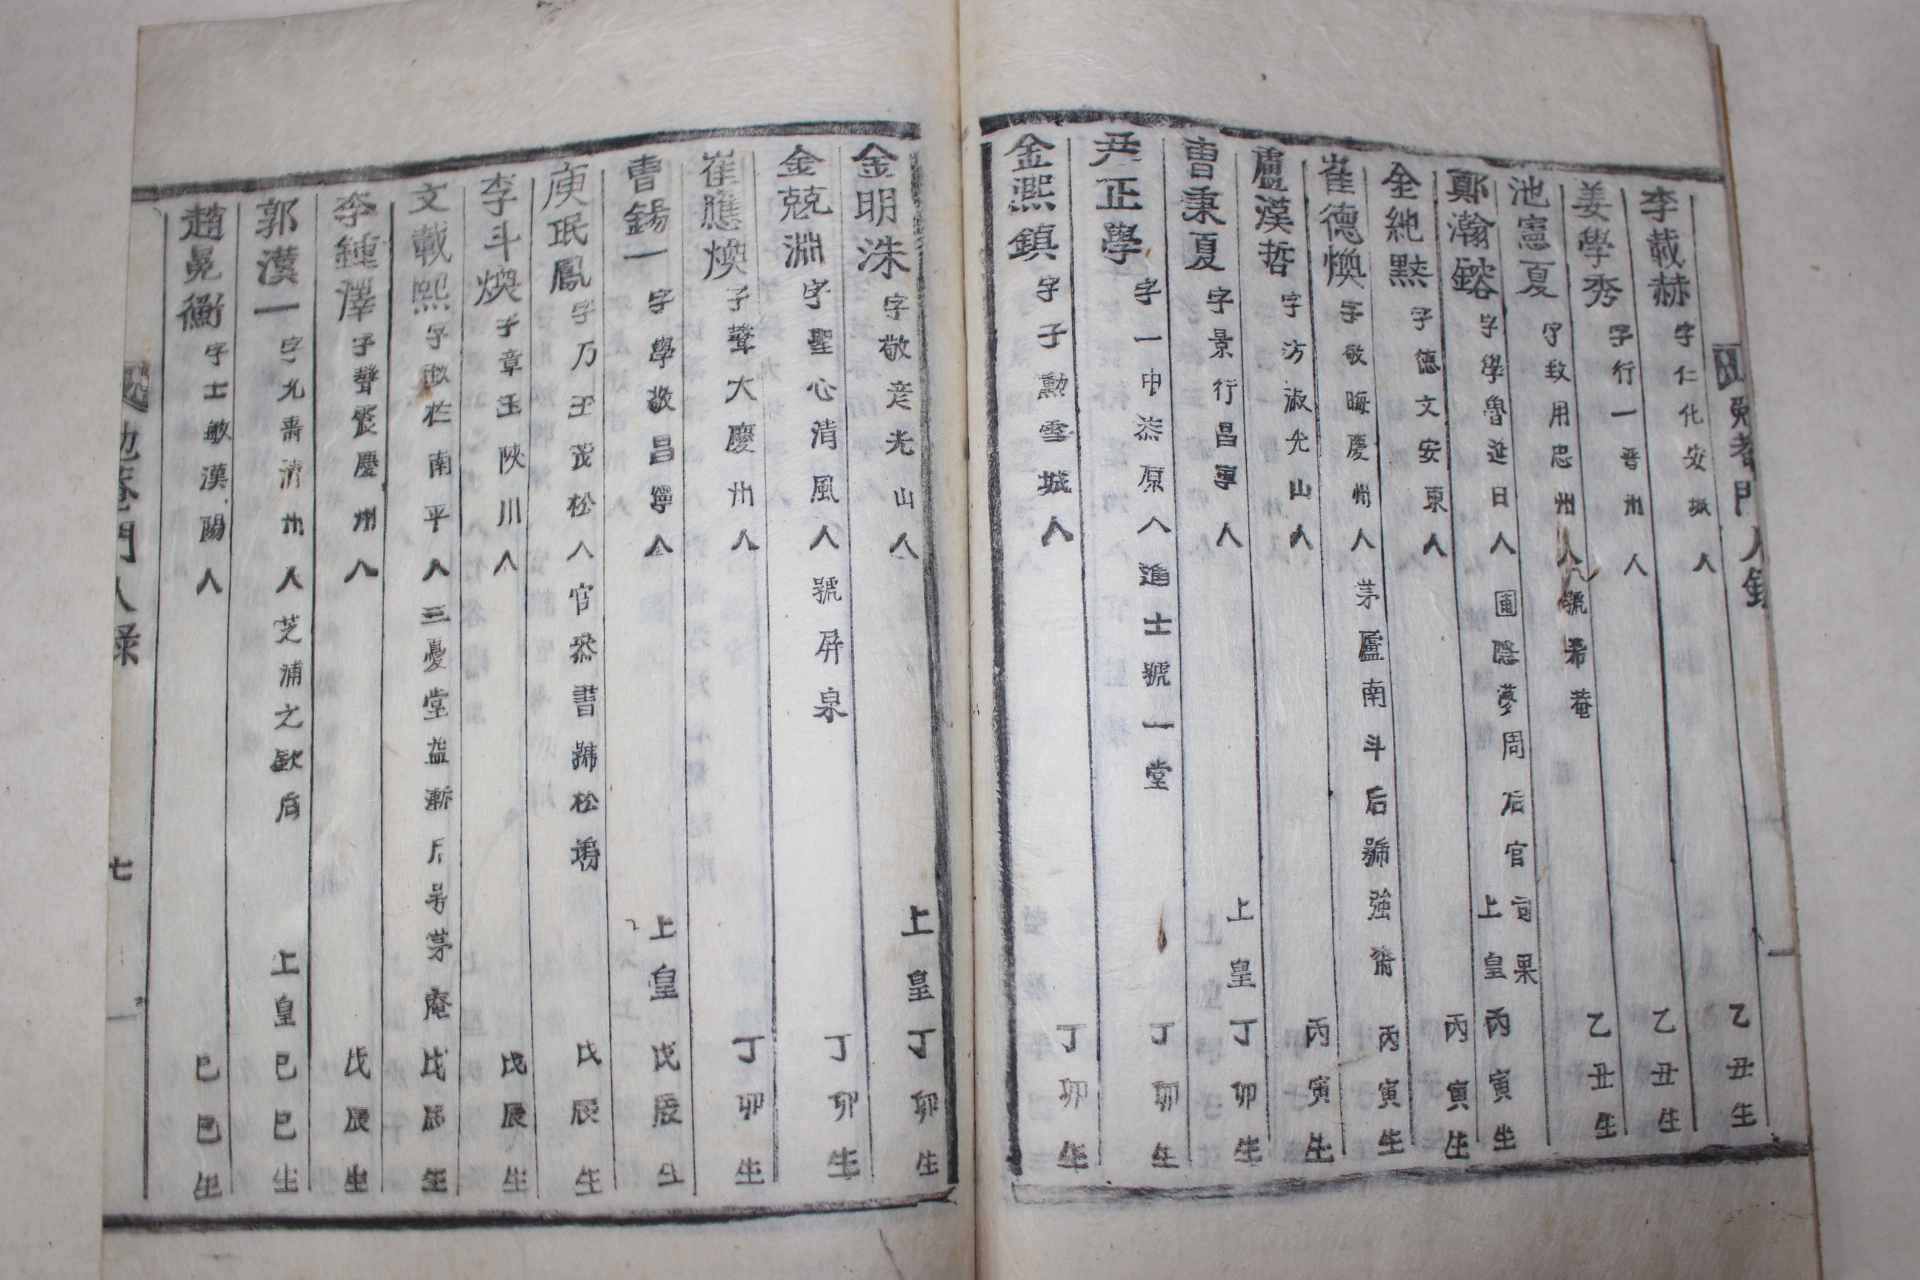 李載赫 字仁化安城人 乙丑生
姜學秀 字行一晋州人 乙丑生
池憲夏 字致用忠州人號希菴 乙丑生
鄭瀚鎔 字學魯延日人圃隱夢周后官司果 上皇丙寅生
金純默 字德文安東人 丙寅生
崔德煥 字敬晦慶州人茅廬南斗后號強齋 丙寅生
盧漢哲 字汸淑光山人 丙寅生
曺秉夏 字景行昌寧人 上皇丁卯生
尹正學 字一中㳟原人進士號一堂 丁卯生
金凞鎮 字子勳雪城人 丁卯生
金明洙 字敬彦光山人 上皇丁卯生
金兢淵 字聖心清風人號屏泉 丁卯生
崔應煥 字聲大慶州人 丁卯生
曺錫一 字學敬昌寧人 上皇戊辰生
庾珉鳳 字乃王茂松人官叅書號松塢 戊辰生
李斗煥 字章玉陜川人 戊辰生
文載熙 字 南平人三憂堂益漸后号茅庵 戊辰生
李鍾澤 字聲 慶州人 戊辰生
郭漢一 字允壽清州人芝浦之 后 上皇己巳生
趙晃衡 字士敏漢陽人 己巳生
勉菴門人錄 七